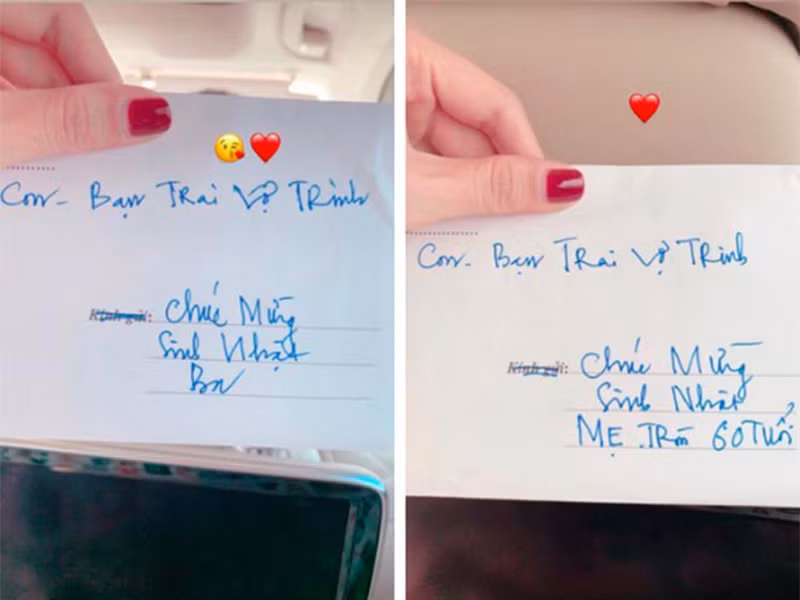 Con - Bạn Trai Vợ Trinh
Kính gửi: Chúc Mừng
Sinh Nhật
Ba
Con - Bạn Trai Vợ Trinh
Kính gửi: Chúc Mừng
Sinh Nhật
MẸ Tròn 60 Tuổi